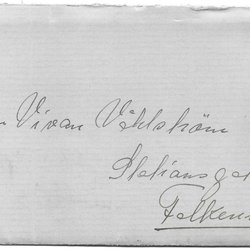 Vivan Vihlström
Stationsga
Falken